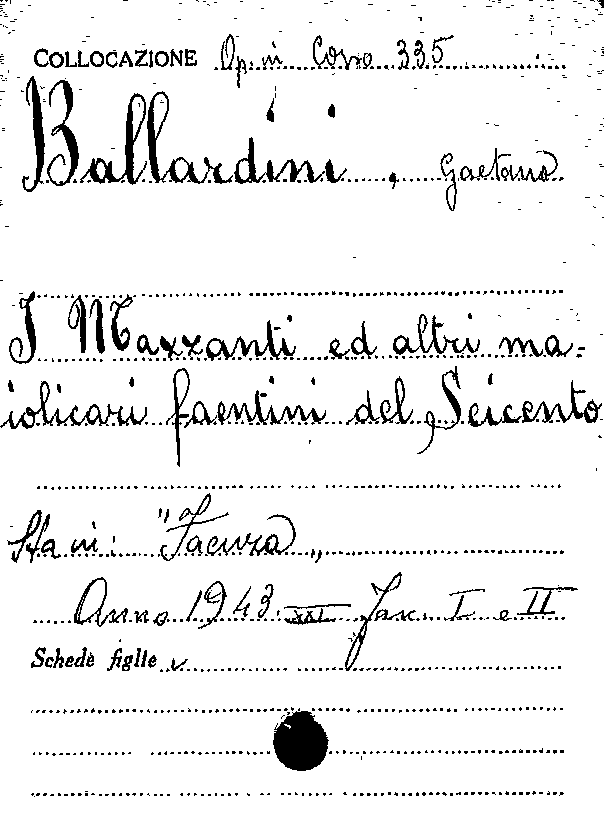 COLLOCAZIONE Op. in Corso 335
Ballardini, Gaetano
I Mazzanti ed altri ma=
iolicari faentini del Seicento
Sta in: "Faenza„
Anno 1943. XXI Fasc. I e II
Schede figlie